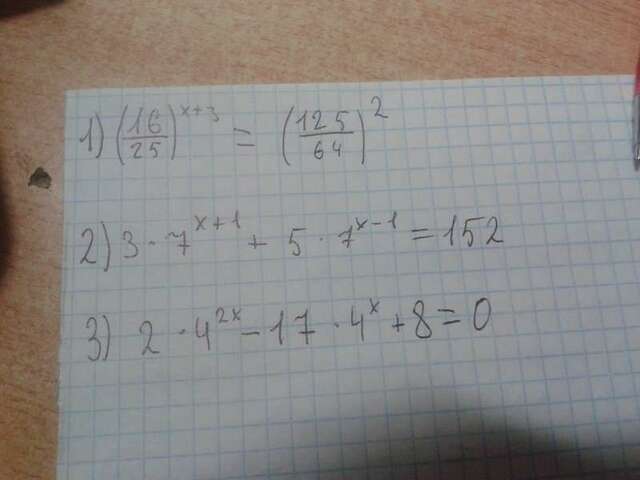 1) (16/25)^{x+3} = (125/64)^2
2) 3 · 7^{x+1} + 5 · 7^{x-1} = 152
3) 2 · 4^{2x} - 17 · 4^x + 8 = 0